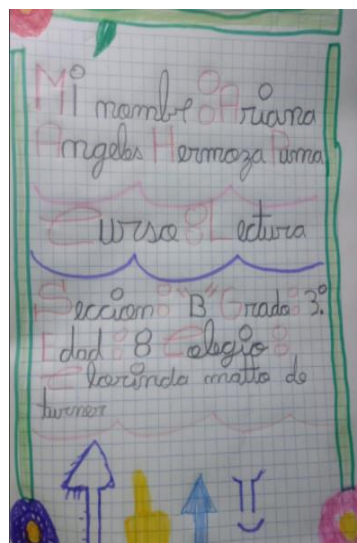 Mi nombre: Ariana
Angeles Hermoza Puma
Curso: Lectura
Seccion: "B" Grado: 3°
Edad: 8 Colegio:
Clorinda matto de
turner